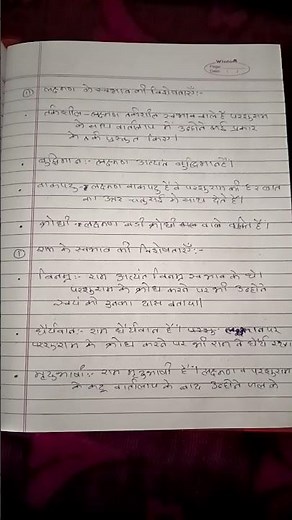 ① लक्ष्मण के स्वभाव की विशेषताएँ:-
तर्कशील - लक्ष्मण तर्कशील स्वभाव वाले हैं परशुराम
के साथ वार्तालाप में उन्होंने कई प्रकार
के तर्क प्रस्तुत किए।
बुद्धिमान - लक्ष्मण अत्यंत बुद्धिमान हैं।
वाकपटु - लक्ष्मण वाकपटु हैं वे परशुराम की हर बात
का उत्तर चतुराई के साथ देते हैं।
क्रोधी - लक्ष्मण बड़ी क्रोधी वाले व्यक्ति हैं।
① राम के स्वभाव की विशेषताएँ:-
विनम्र:- राम अत्यंत विनम्र स्वभाव के थे।
परशुराम के क्रोध करने पर भी उन्होंने
स्वयं को उनका दास बताया।
धैर्यवान:- राम धैर्यवान हैं। पर
परशुराम के क्रोध करने पर भी राम ने धैर्य रखा।
मृदुभाषी:- राम मृदुभाषी हैं। लक्ष्मण व परशुराम
के कटु वार्तालाप के बाद उन्होंने जल के